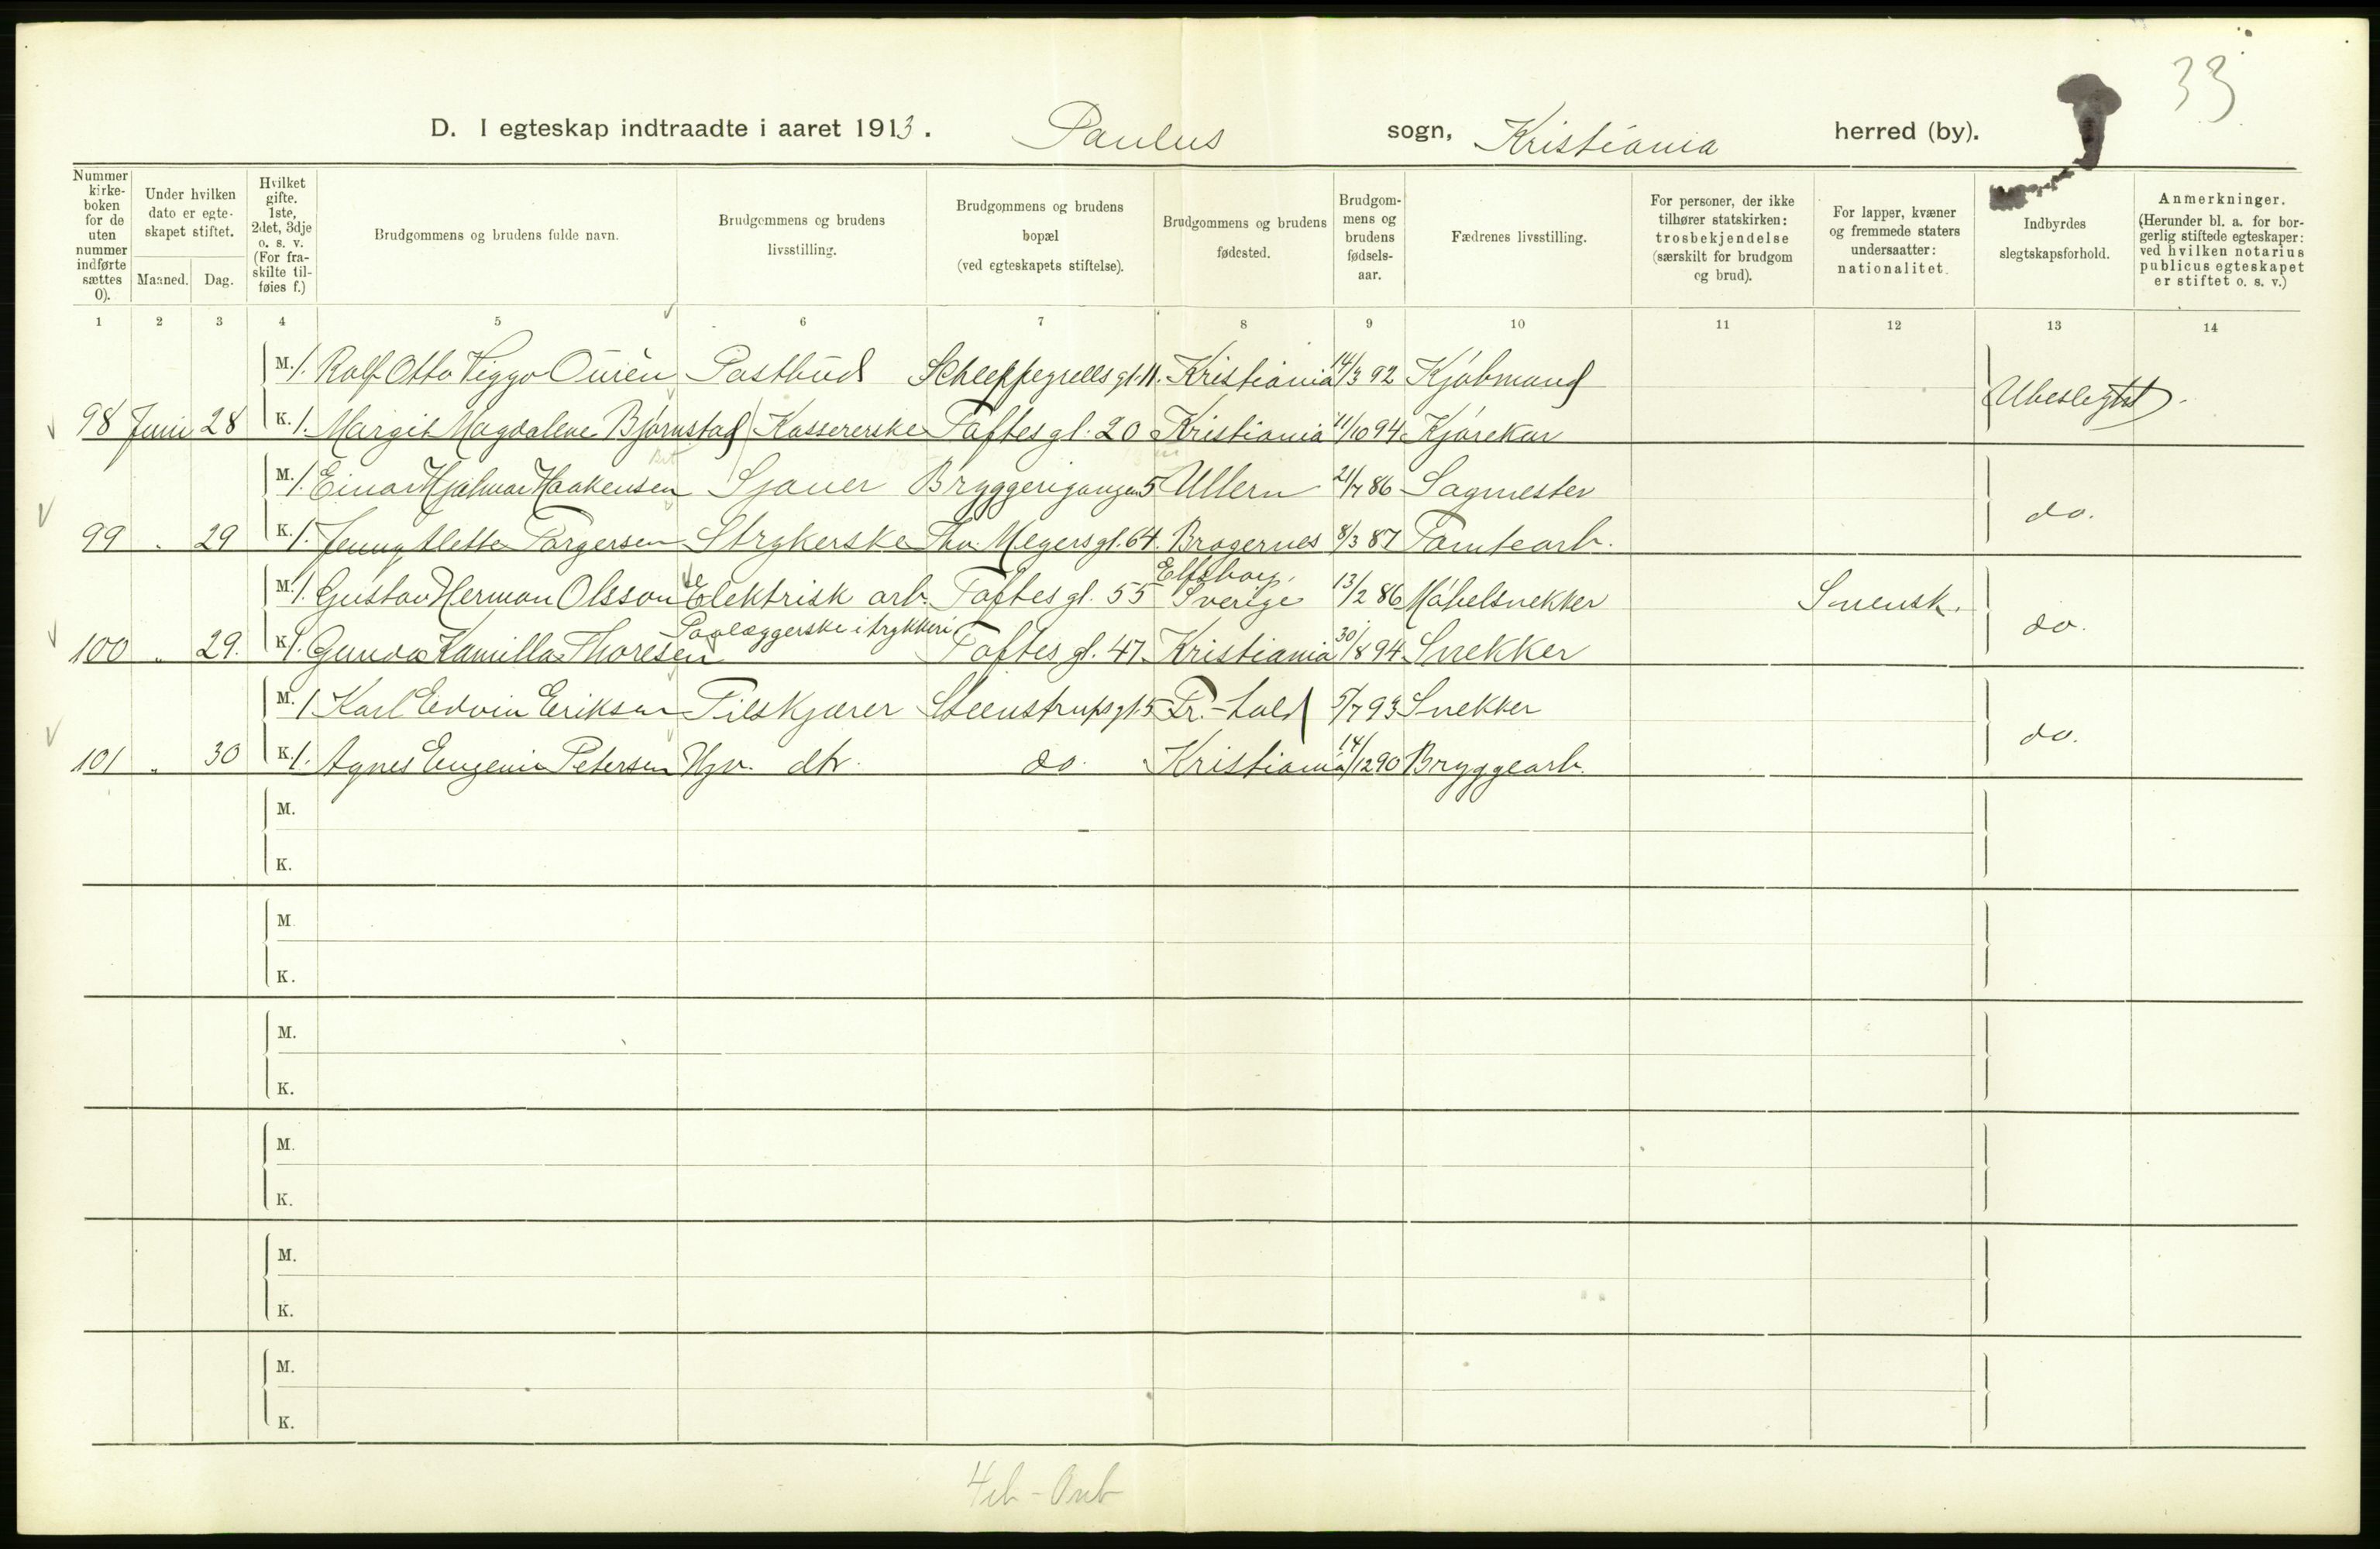 33
D. I egteskap indtraadte i aaret 1913. Paulus sogn, Kristiania herred (by).
Nummer kirkeboken for de uten nummer indførte sættes 0).
Under hvilken dato er egteskapet stiftet.
Maaned. Dag.
Hvilket gifte. 1ste, 2det, 3dje o. s. v. (For fraskilte tilføies f.)
Brudgommens og brudens fulde navn.
Brudgommens og brudens livsstilling.
Brudgommens og brudens bopæl (ved egteskapets stiftelse).
Brudgommens og brudens fødested.
Brudgommens og brudens fødselsaar.
Fædrenes livsstilling.
For personer, der ikke tilhører statskirken: trosbekjendelse (særskilt for brudgom og brud).
For lapper, kvæner og fremmede staters undersaatter: nationalitet.
Indbyrdes slegtskapsforhold.
Anmerkninger. (Herunder bl. a. for borgerlig stiftede egteskaper: ved hvilken notarius publicus egteskapet er stiftet o. s. v.)
1 2 3 4 5 6 7 8 9 10 11 12 13 14
M. 1. Rolf Otto Viggo Ourèn Postbud Schleppegrells gt. 11. Kristiania 14/3 92 Kjøbmand
98 Juni 28 K. 1. Margit Magdalene Bjørnstad Kassererske Toftes gt. 20 Kristiania 11/10 94 Kjørekar Ubeslegtet.
M. 1. Einar Hjalmar Haakensen Sjauer Bryggerigangen 5 Ullern 21/7 86 Sagmester
99 " 29 K. 1. Jenny Alette Torgersen Strykerske Thv. Meyers gt. 64. Bragernes 8/3 87 Tomtearb. do.
M. 1. Gustav Herman Olsson Elektrisk arb. Toftes gt. 55 Elfsborg, Sverige 13/2 86 Møbelsnekker Svensk.
100 " 29. K. 1. Gunda Kamilla Thoresen Paalæggerske i trykkeri Toftes gt. 47. Kristiania 30/8 94 Snekker do.
M. 1. Karl Edvin Eriksen Pilskjærer Steenstrups gt. 5 Fr.-hald 5/7 93 Snekker
101 " 30 K. 1. Agnes Eugenie Petersen Hjv. dtr. do. Kristiania 14/12 90 Bryggearb. do.
M.
K.
M.
K.
M.
K.
M.
K.
M.
K.
M.
K.